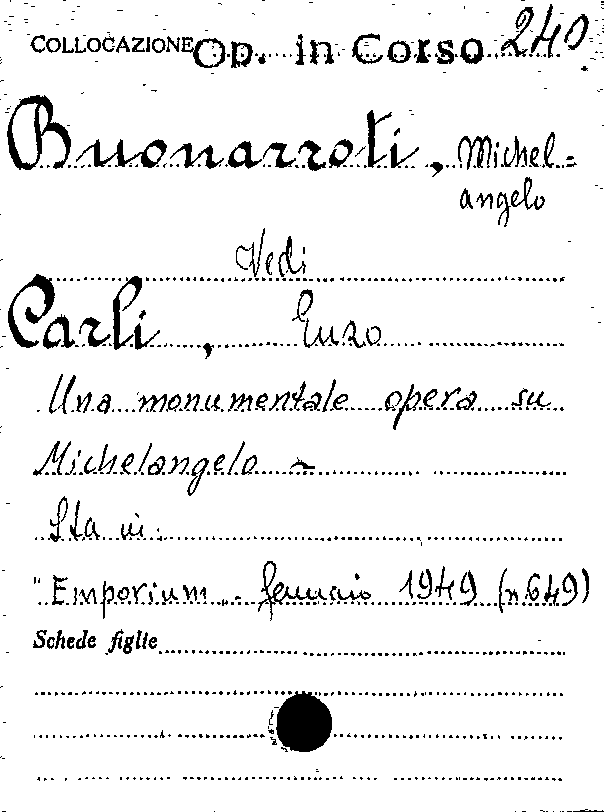 COLLOCAZIONE Op. in Corso 240
Buonarroti, Michel=
angelo
Vedi
Carli, Enzo
Una monumentale opera su
Michelangelo -
Sta in:
"Emporium" - gennaio 1949 (n. 649)
Schede figlie